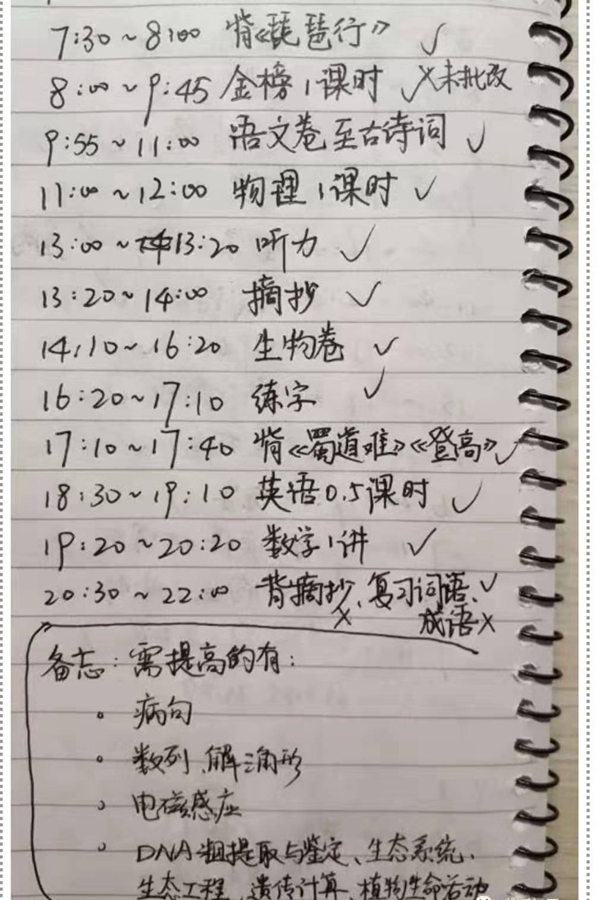 7:30~8:00 背《琵琶行》 ✓
8:00~9:45 金榜1课时 ✓×未批改
9:55~11:00 语文卷至古诗词 ✓
11:00~12:00 物理1课时 ✓
13:00~13:20 听力 ✓
13:20~14:00 摘抄 ✓
14:10~16:20 生物卷 ✓
16:20~17:10 练字 ✓
17:10~17:40 背《蜀道难》《登高》✓
18:30~19:10 英语0.5课时 ✓
19:20~20:20 数学1讲 ✓
20:30~22:00 背摘抄、复习词语、✓
× 成语×
备忘:需提高的有:
。病句
。数列、解三角形
。电磁感应
。DNA粗提取与鉴定、生态系统、
生态工程、遗传计算、植物生命活动